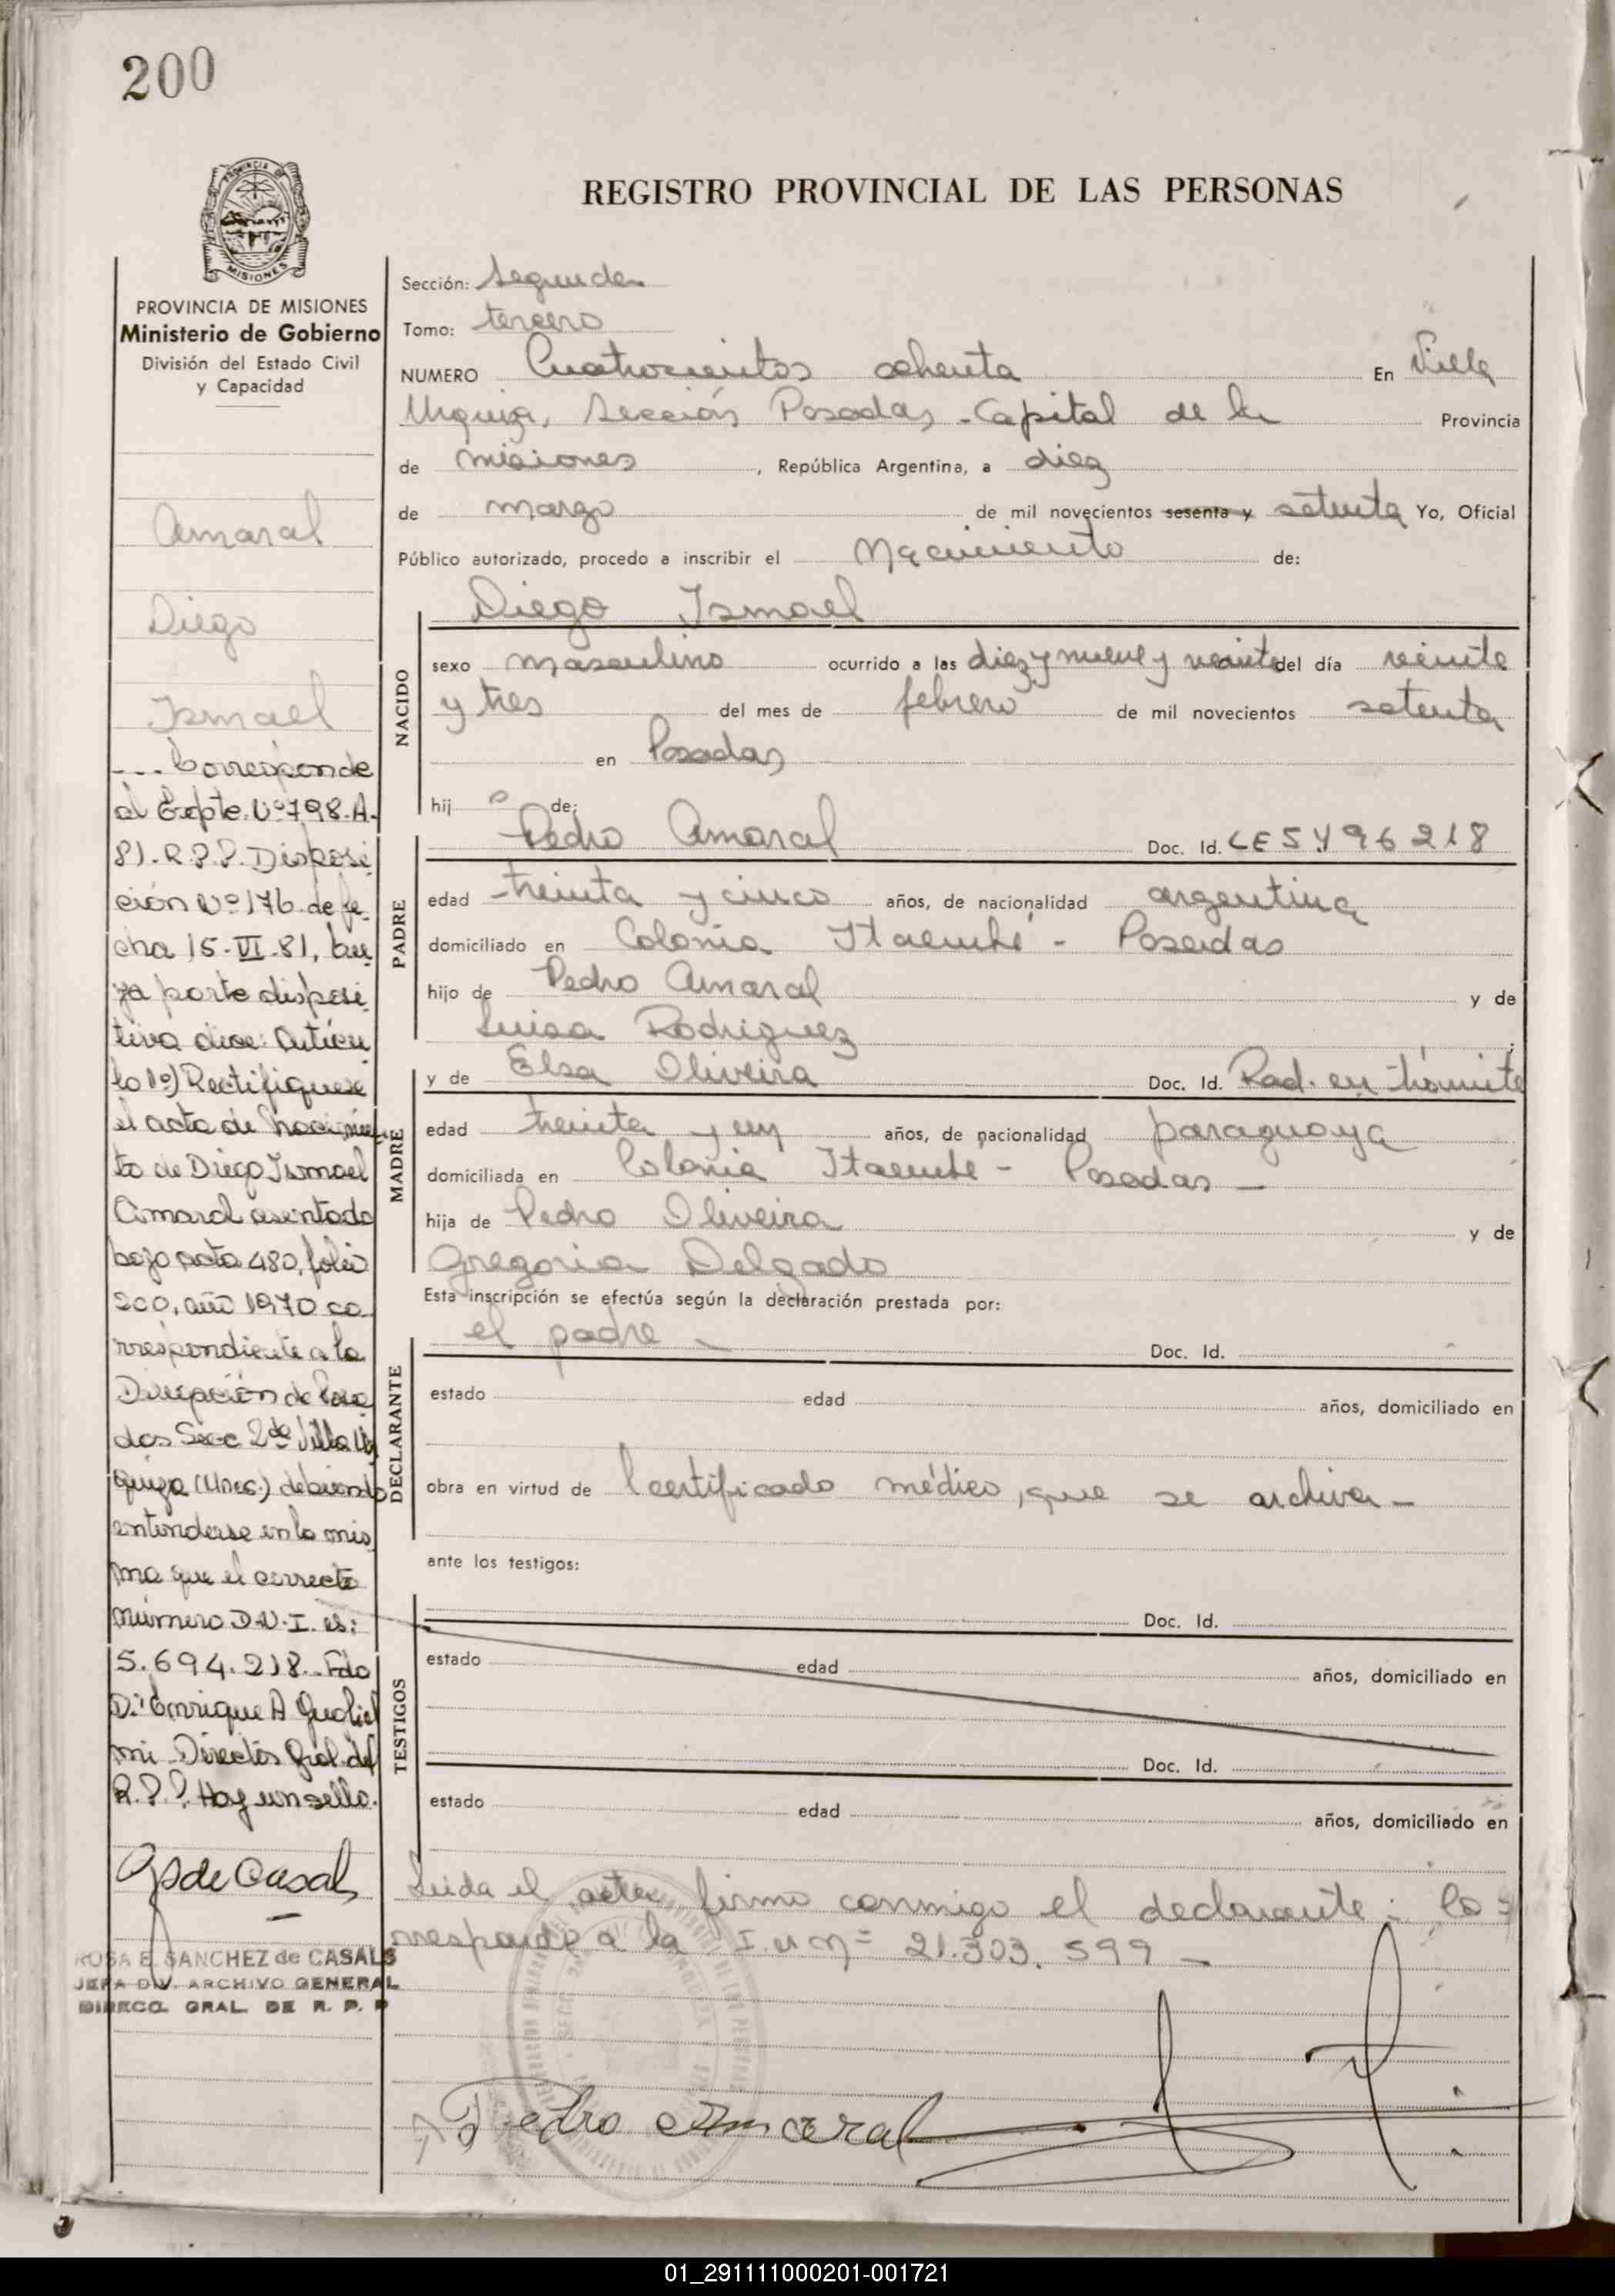 200
PROVINCIA DE
MISIONES
REGISTRO PROVINCIAL DE LAS PERSONAS
PROVINCIA DE MISIONES
Ministerio de Gobierno
División del Estado Civil
y Capacidad
Amaral
Diego
Ismael
--- Corresponde
al Expte. Nº 798-A-
81-R.P.P. Disposi
ción Nº 176 de fe-
cha 15-VI-81, cu
ya parte disposi
tiva dice: Artícu
lo 1º) Rectifiquese
el acta de nacimien
to de Diego Ismael
Amaral asentado
bajo acta 480, folio
200, año 1970 co
rrespondiente a la
de Posa
das Secc 2da Villa Ur
quiza (Mnes.) debiendo
entenderse en la mis
ma que el correcto
número D.N.I. es:
5.694.218. Fdo
Dr Enrique A Guliel
mi Director Gral. del
R.P.P. Hay un sello.
GSdeCasals
ROSA E. SANCHEZ de CASALS
JEFA DIV. ARCHIVO GENERAL
DIRECC. GRAL. DE R. P. P
Sección: Segunda
Tomo: tercero
NUMERO Cuatrocientos ochenta En Villa
Urquiza, Sección Posadas - Capital de la Provincia
de misiones, República Argentina, a diez
de marzo de mil novecientos sesenta y setenta Yo, Oficial
Público autorizado, procedo a inscribir el Nacimiento de:
Diego Ismael
NACIDO
sexo masculino ocurrido a las diez y nueve y veinte del día veinte
y tres del mes de febrero de mil novecientos setenta
en Posadas
hij o de:
Pedro Amaral Doc. Id. LE 5.496218
PADRE
edad treinta y cinco años, de nacionalidad argentina
domiciliado en Colonia Itaembé - Posadas
hijo de Pedro Amaral y de
Luisa Rodriguez;
y de Elsa Oliveira Doc. Id. Rad. en trámite
MADRE
edad treinta y un años, de nacionalidad paraguaya
domiciliada en Colonia Itaembé - Posadas -
hija de Pedro Oliveira y de
Gregoria Delgado
Esta inscripción se efectúa según la declaración prestada por:
el padre - Doc. Id.
DECLARANTE
estado edad años, domiciliado en
obra en virtud de certificado médico, que se archiva -
ante los testigos:
Doc. Id.
TESTIGOS
estado edad años, domiciliado en
Doc. Id.
estado edad años, domiciliado en
Leida el acta, firma conmigo el declarante: Co=
rresponde a la I.U Nº 21.303.599 -
Pedro Amaral
01_291111000201-001721